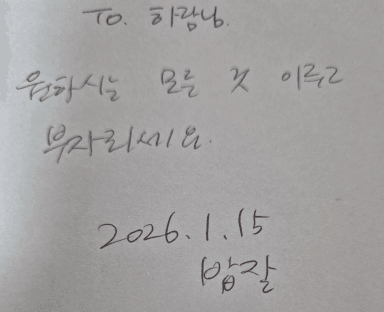 To. 하람님.
원하시는 모든 것 이루고
부자리세요.
2026.1.15
밥잘